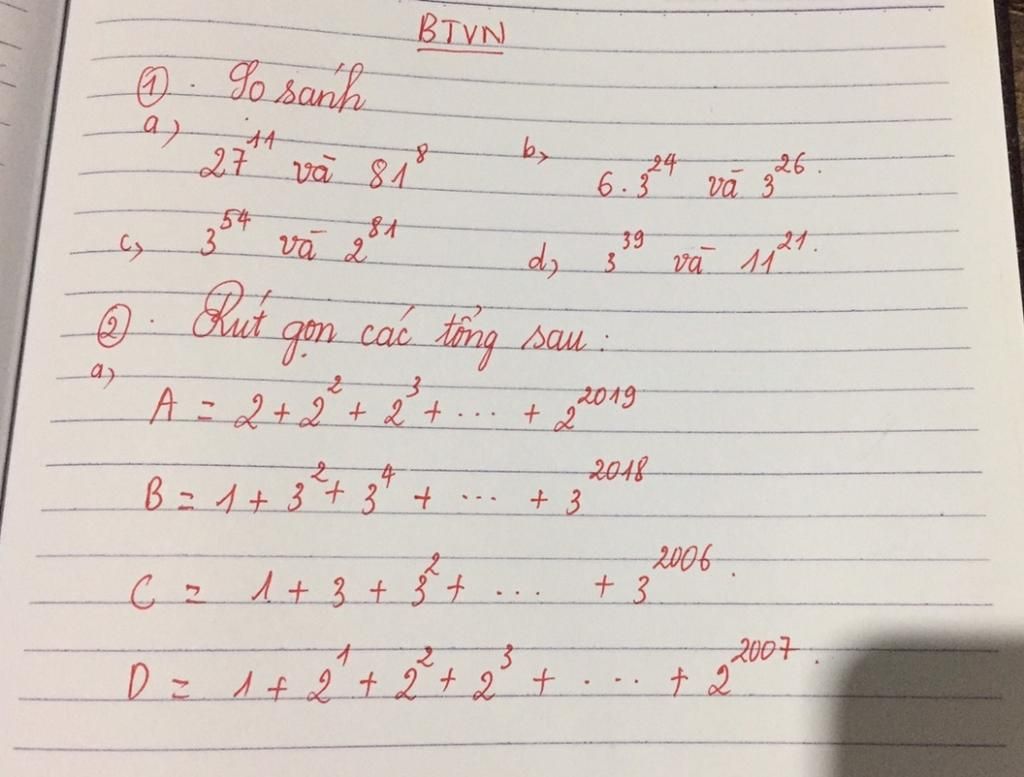 BTVN
① . So sánh
a) 27^11 và 81^8 b) 6 . 3^24 và 3^26.
c) 3^54 và 2^81 d) 3^39 và 11^21.
② . Rút gọn các tổng sau :
a) A = 2 + 2^2 + 2^3 + ... + 2^2019
B = 1 + 3^2 + 3^4 + ... + 3^2018
C = 1 + 3 + 3^2 + ... + 3^2006.
D = 1 + 2^1 + 2^2 + 2^3 + .... + 2^2007.